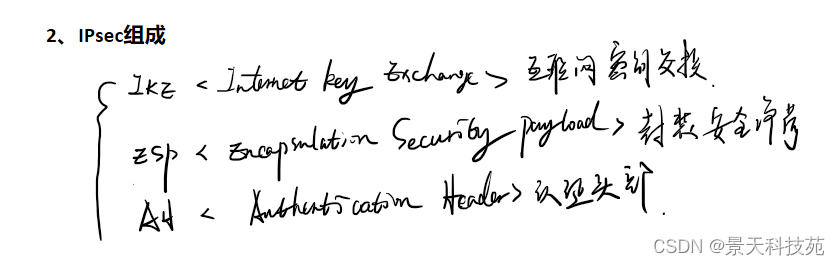 2、IPsec组成
IKE < Internet key Exchange > 互联网密钥交换.
ESP < Encapsulation Security payload > 封装安全净荷
AH < Authentication Header > 认证头部.
CSDN @景天科技苑